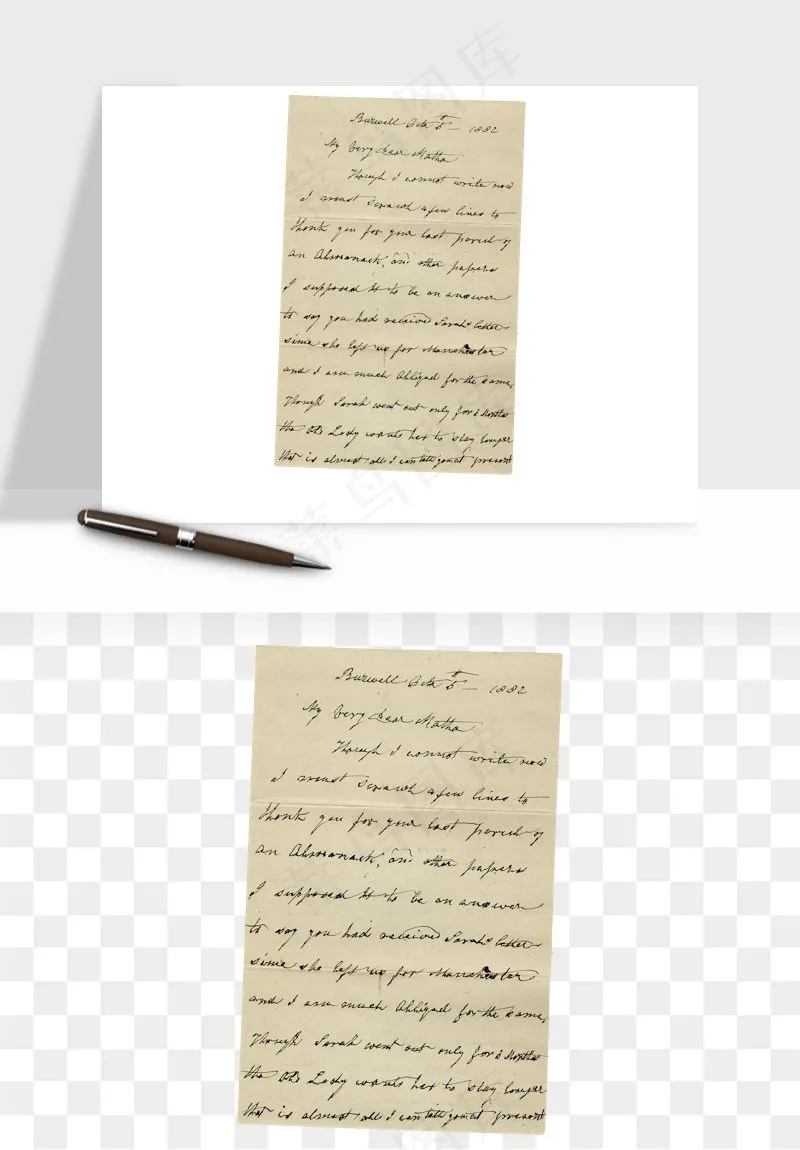 Burwell Octr 5th — 1882
My Very dear Martha
Though I cannot write now
I must scrawl a few lines to
thank you for your last parcel of
an Almanack, and other papers
I supposed it to be an answer
to say you had received Sarah's letter
since she left us for Manchester
and I am much obliged for the same,
though Sarah went out only for 2 Months
the Old Lady wants her to stay longer
that is almost all I can tell you at present
菜鸟图库
菜鸟图库
Burwell Octr 5th — 1882
My Very dear Martha
Though I cannot write now
I must scrawl a few lines to
thank you for your last parcel of
an Almanack, and other papers
I supposed it to be an answer
to say you had received Sarah's letter
since she left us for Manchester
and I am much obliged for the same,
though Sarah went out only for 2 Months
the Old Lady wants her to stay longer
that is almost all I can tell you at present